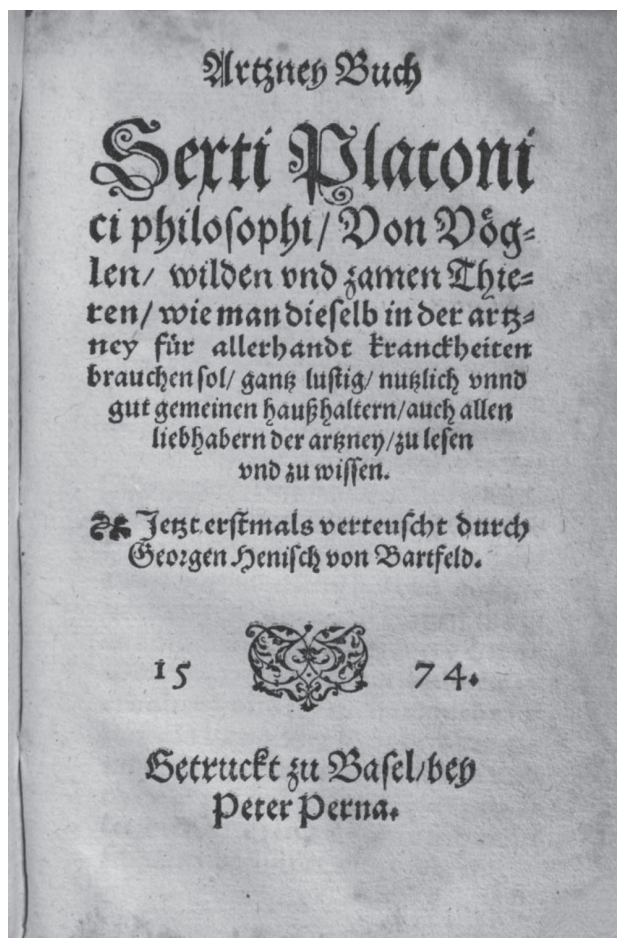 Artzney Buch
Sexti Platoni
ci philosophi/ Von Vög⸗
len/ wilden vnd zamen Thie⸗
ren/ wie man dieselb in der artz⸗
ney für allerhandt kranckheiten
brauchen sol/ gantz lustig/ nutzlich vnnd
gut gemeinen haußhaltern/ auch allen
liebhabern der artzney/ zu lesen
vnd zu wissen.
Jetzt erstmals verteuscht durch
Georgen Henisch von Bartfeld.
15 74.
Getruckt zu Basel/ bey
Peter Perna.